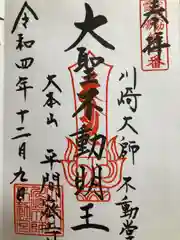 奉拝
川崎大師 不動堂
大聖不動明王
大本山 平間寺
令和四年十二月九日